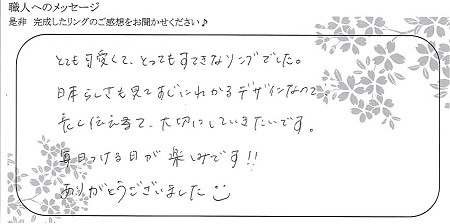 職人へのメッセージ
是非 完成したリングのご感想をお聞かせください♪
とても可愛くて、とってもすてきなリングでした。
日本らしさも見てすじにわかるデザインなので
長し伝え当て、大切にしていきたいです。
毎日つける日が楽しみです!!
ありがとうございました